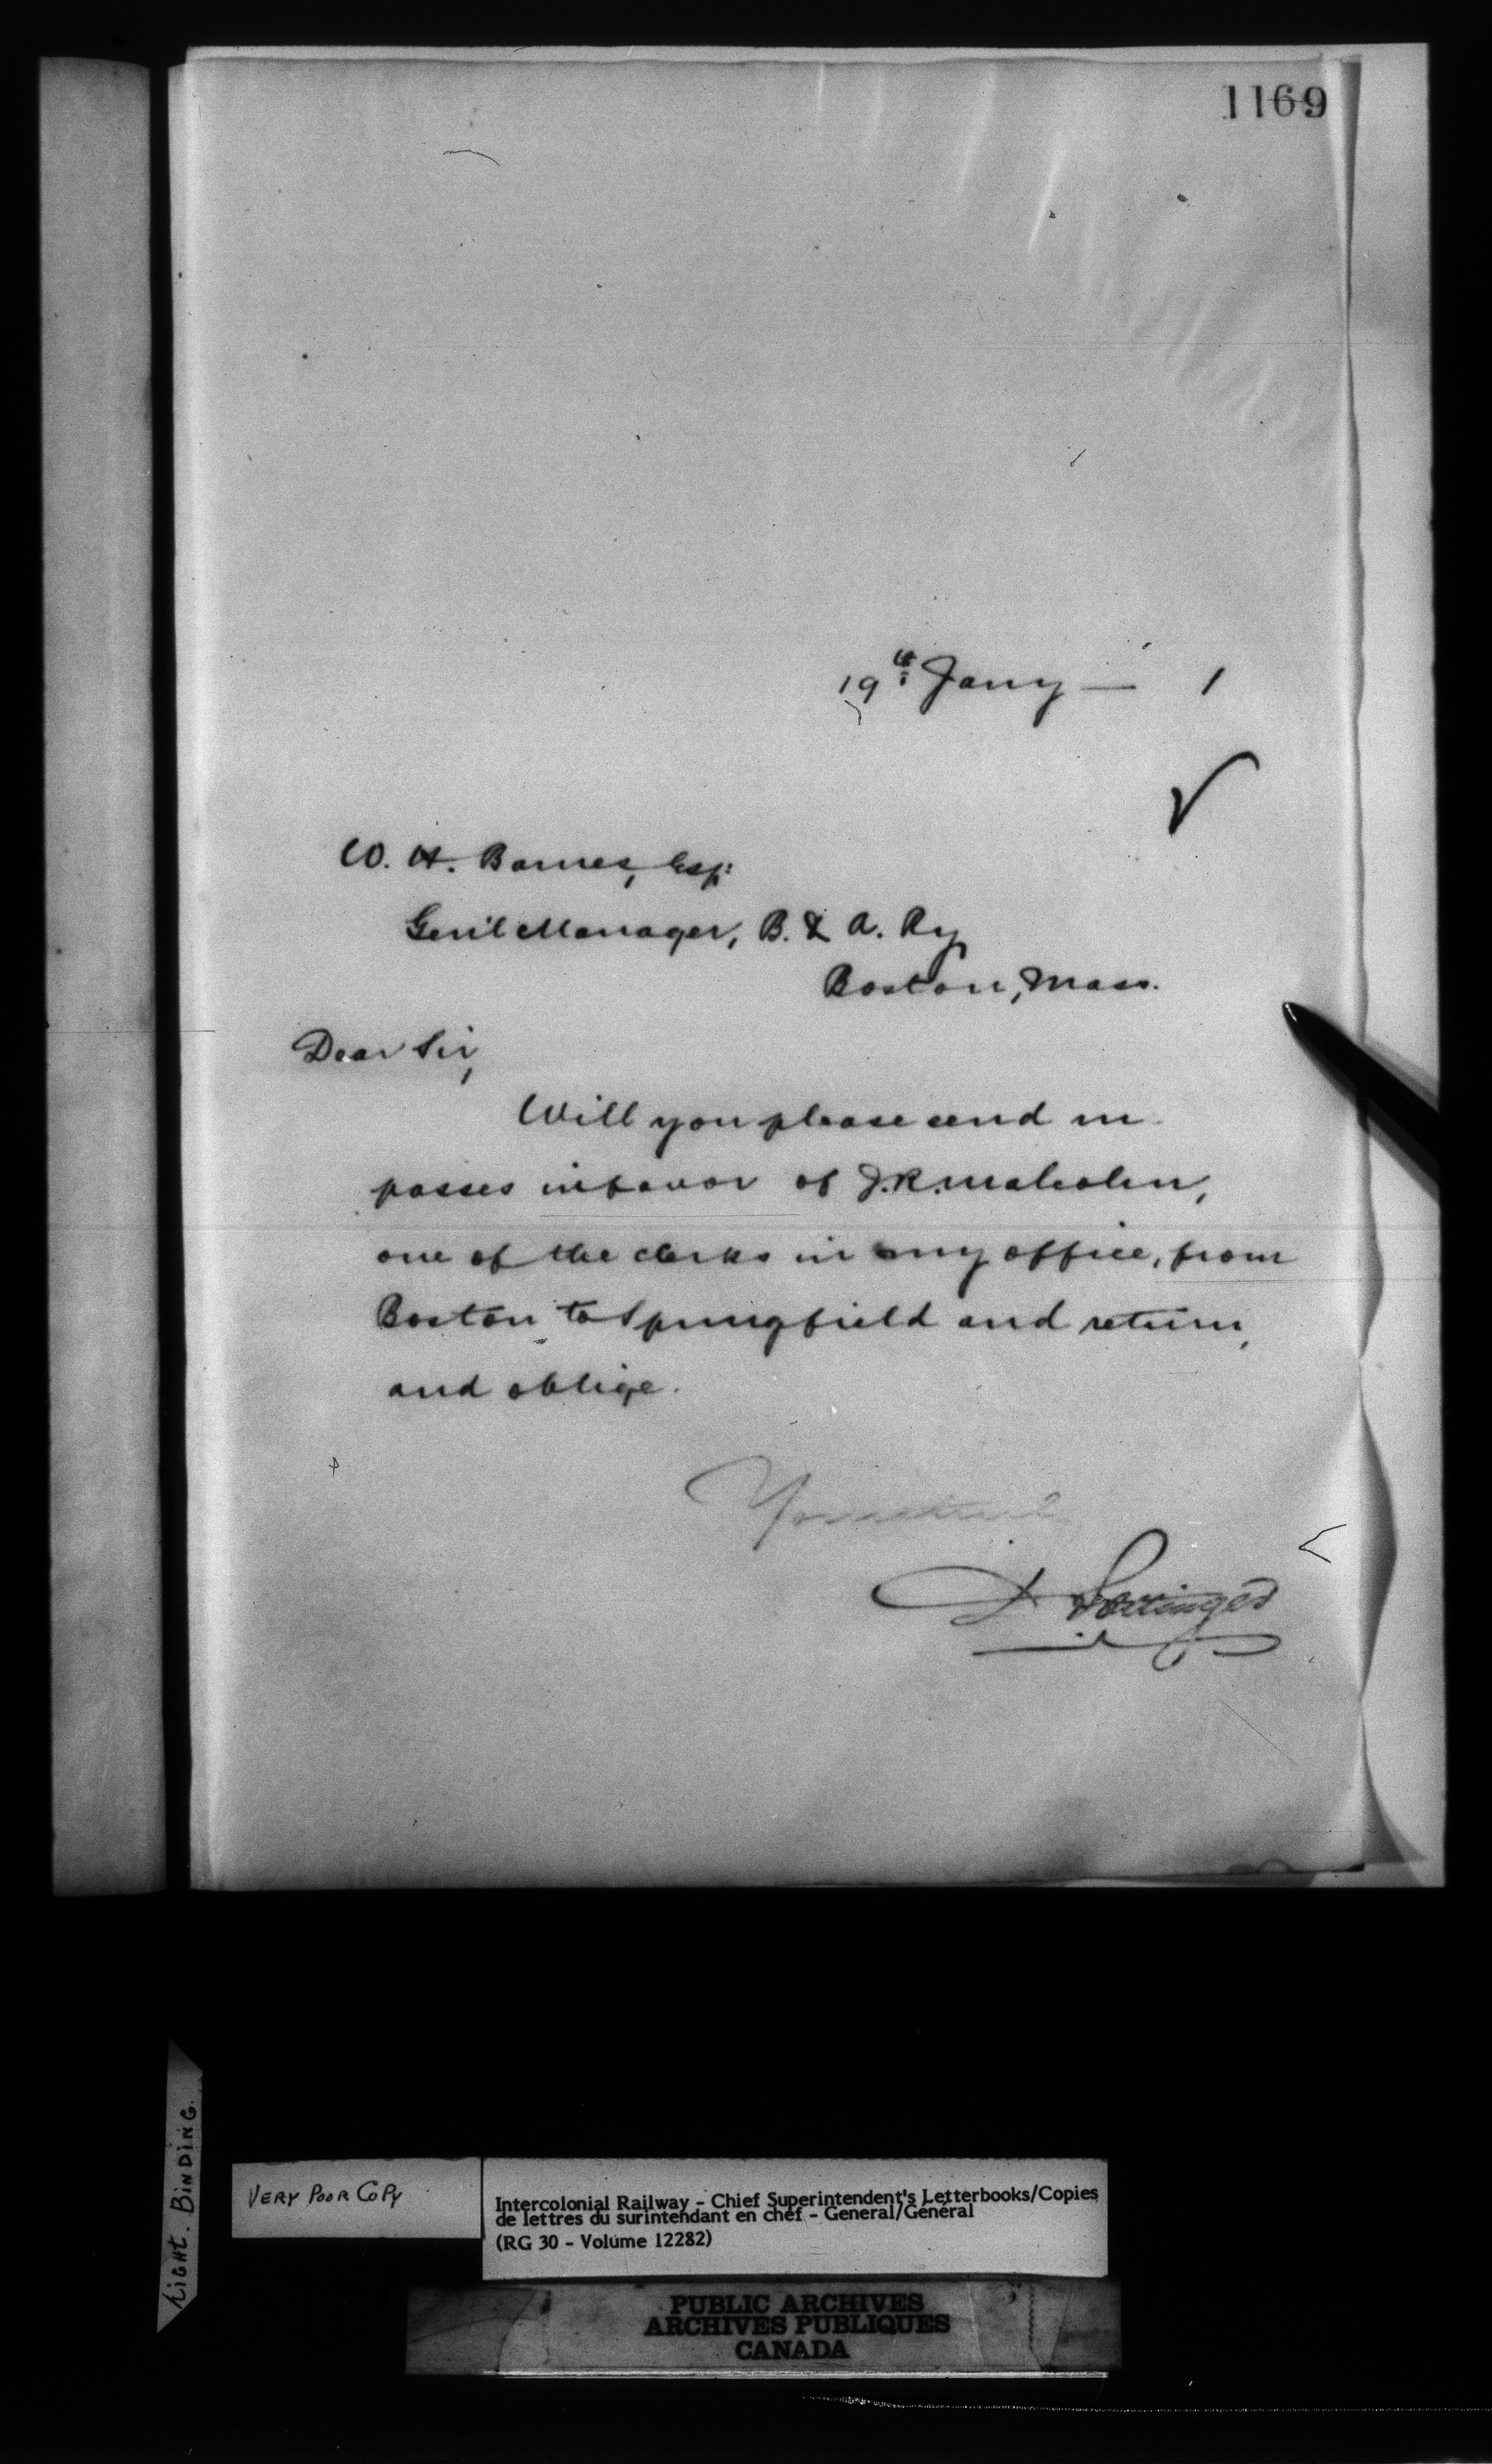 1169
19th Jany — 1
W. H. Barnes, Esq:
Gen'l Manager, B. & A. Ry
Boston, Mass.
Dear Sir,
Will you please send m
passes in favor of J. R. Malcolm,
one of the clerks in my office, from
Boston to Springfield and return,
and oblige.
D Pottinger
LIGHT. BINDING.
VERY POOR COPY
Intercolonial Railway - Chief Superintendent's Letterbooks/Copies
de lettres du surintendant en chef - General/Général
(RG 30 - Volume 12282)
PUBLIC ARCHIVES
ARCHIVES PUBLIQUES
CANADA